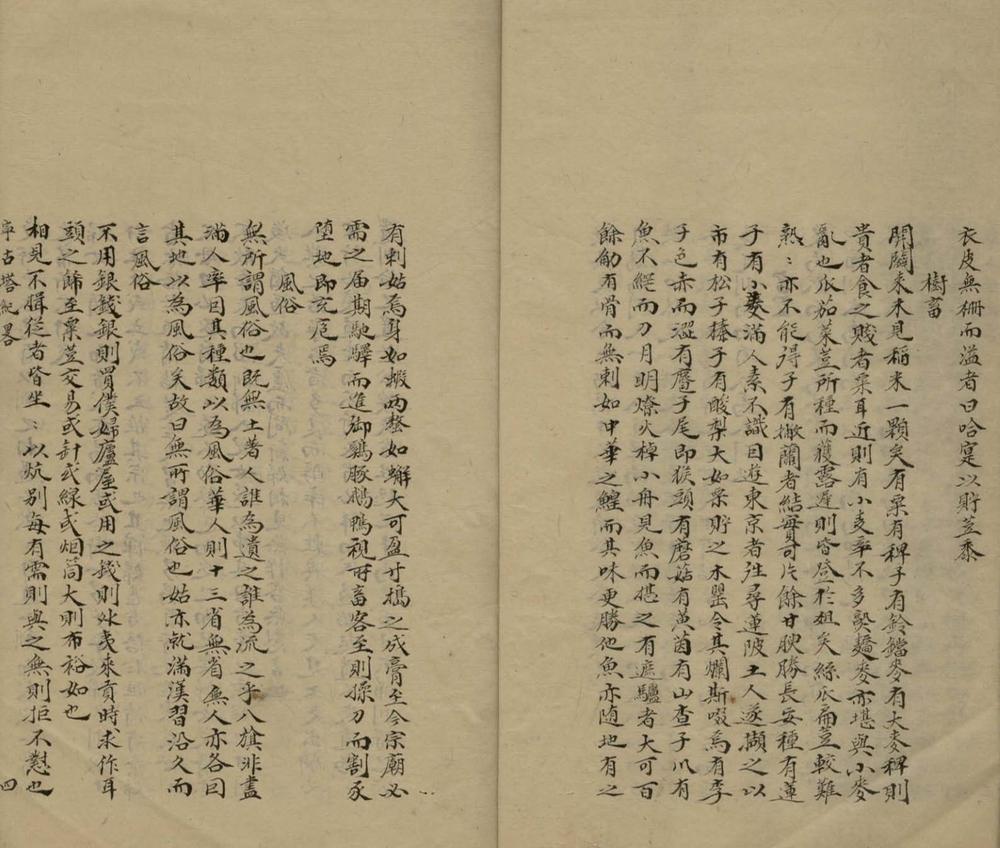 衣皮無柵而溢者曰哈寔以貯荳黍
樹畜
開闢來未見稻米一顆矣有粟有稗子有鈴鐺麥有大麥稗則
貴者食之賤者粟耳近則有小麦率不多熟蕎麥亦堪與小麥
亂也瓜茄菜荳所種而獲露遲則皆登於俎矣絲瓜扁荳較難
熟〻亦不能得子有撇蘭者結實可片餘甘腴勝長安種有蓮
子有小菱滿人素不識曰遊東京者徃尋蓮陂土人遂擷之以
市有松子榛子有酸梨大如栗貯之木罌令其爛斯啜焉有李
子色赤而澀有厴子尾即猴頭有蘑菇有黄茵有山查子爪有
魚不綑而刀月明燎火棹小舟見魚而搓之有遮鱸者大可百
餘觔有骨而無刺如中華之鰉而其味更勝他魚亦随地有之
有刺姑為身如蝦两螯如蠏大可盈寸搗之成膏至今宗廟必
需之届期馳驛而進御鷄豚鵝鴨視所畜客至則操刀而割豕
墮地即充庖焉
風俗
無所謂風俗也既無土著人誰為遺之誰為流之乎八旗非盡
滿人率曰其種類以為風俗華人則十三省無省無人亦各曰
其地以為風俗矣故曰無所謂風俗也姑亦就滿漢習沿久而
言風俗
不用銀錢銀則買僕婦廬屋或用之錢則外夷來貢時求作耳
頭之飾至粟荳交易或針或線或烟筒大則布裕如也
相見不楫從者皆坐〻以炕别每有需則與之無則拒不懟也
寧古塔紀畧
四